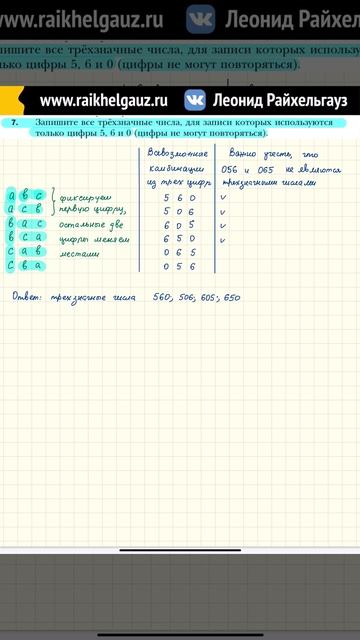 www.raikhelgauz.ru Леонид Райхельгауз
апишите все трёхзначные числа, для записи которых использую
лько цифры 5, 6 и 0 (цифры не могут повторяться).
www.raikhelgauz.ru Леонид Райхельгауз
7. Запишите все трёхзначные числа, для записи которых используются
только цифры 5, 6 и 0 (цифры не могут повторяться).
Всевозможные
комбинации
из трех цифр
Важно учесть, что
056 и 065 не являются
трехзначными числами
а в с фиксируем 5 6 0 v
а с в первую цифру, 5 0 6 v
в а с остальные две 6 0 5 v
в с а цифры меняем 6 5 0 v
с а в местами 0 6 5
с в а 0 5 6
Ответ: трехзначные числа 560; 506; 605; 650